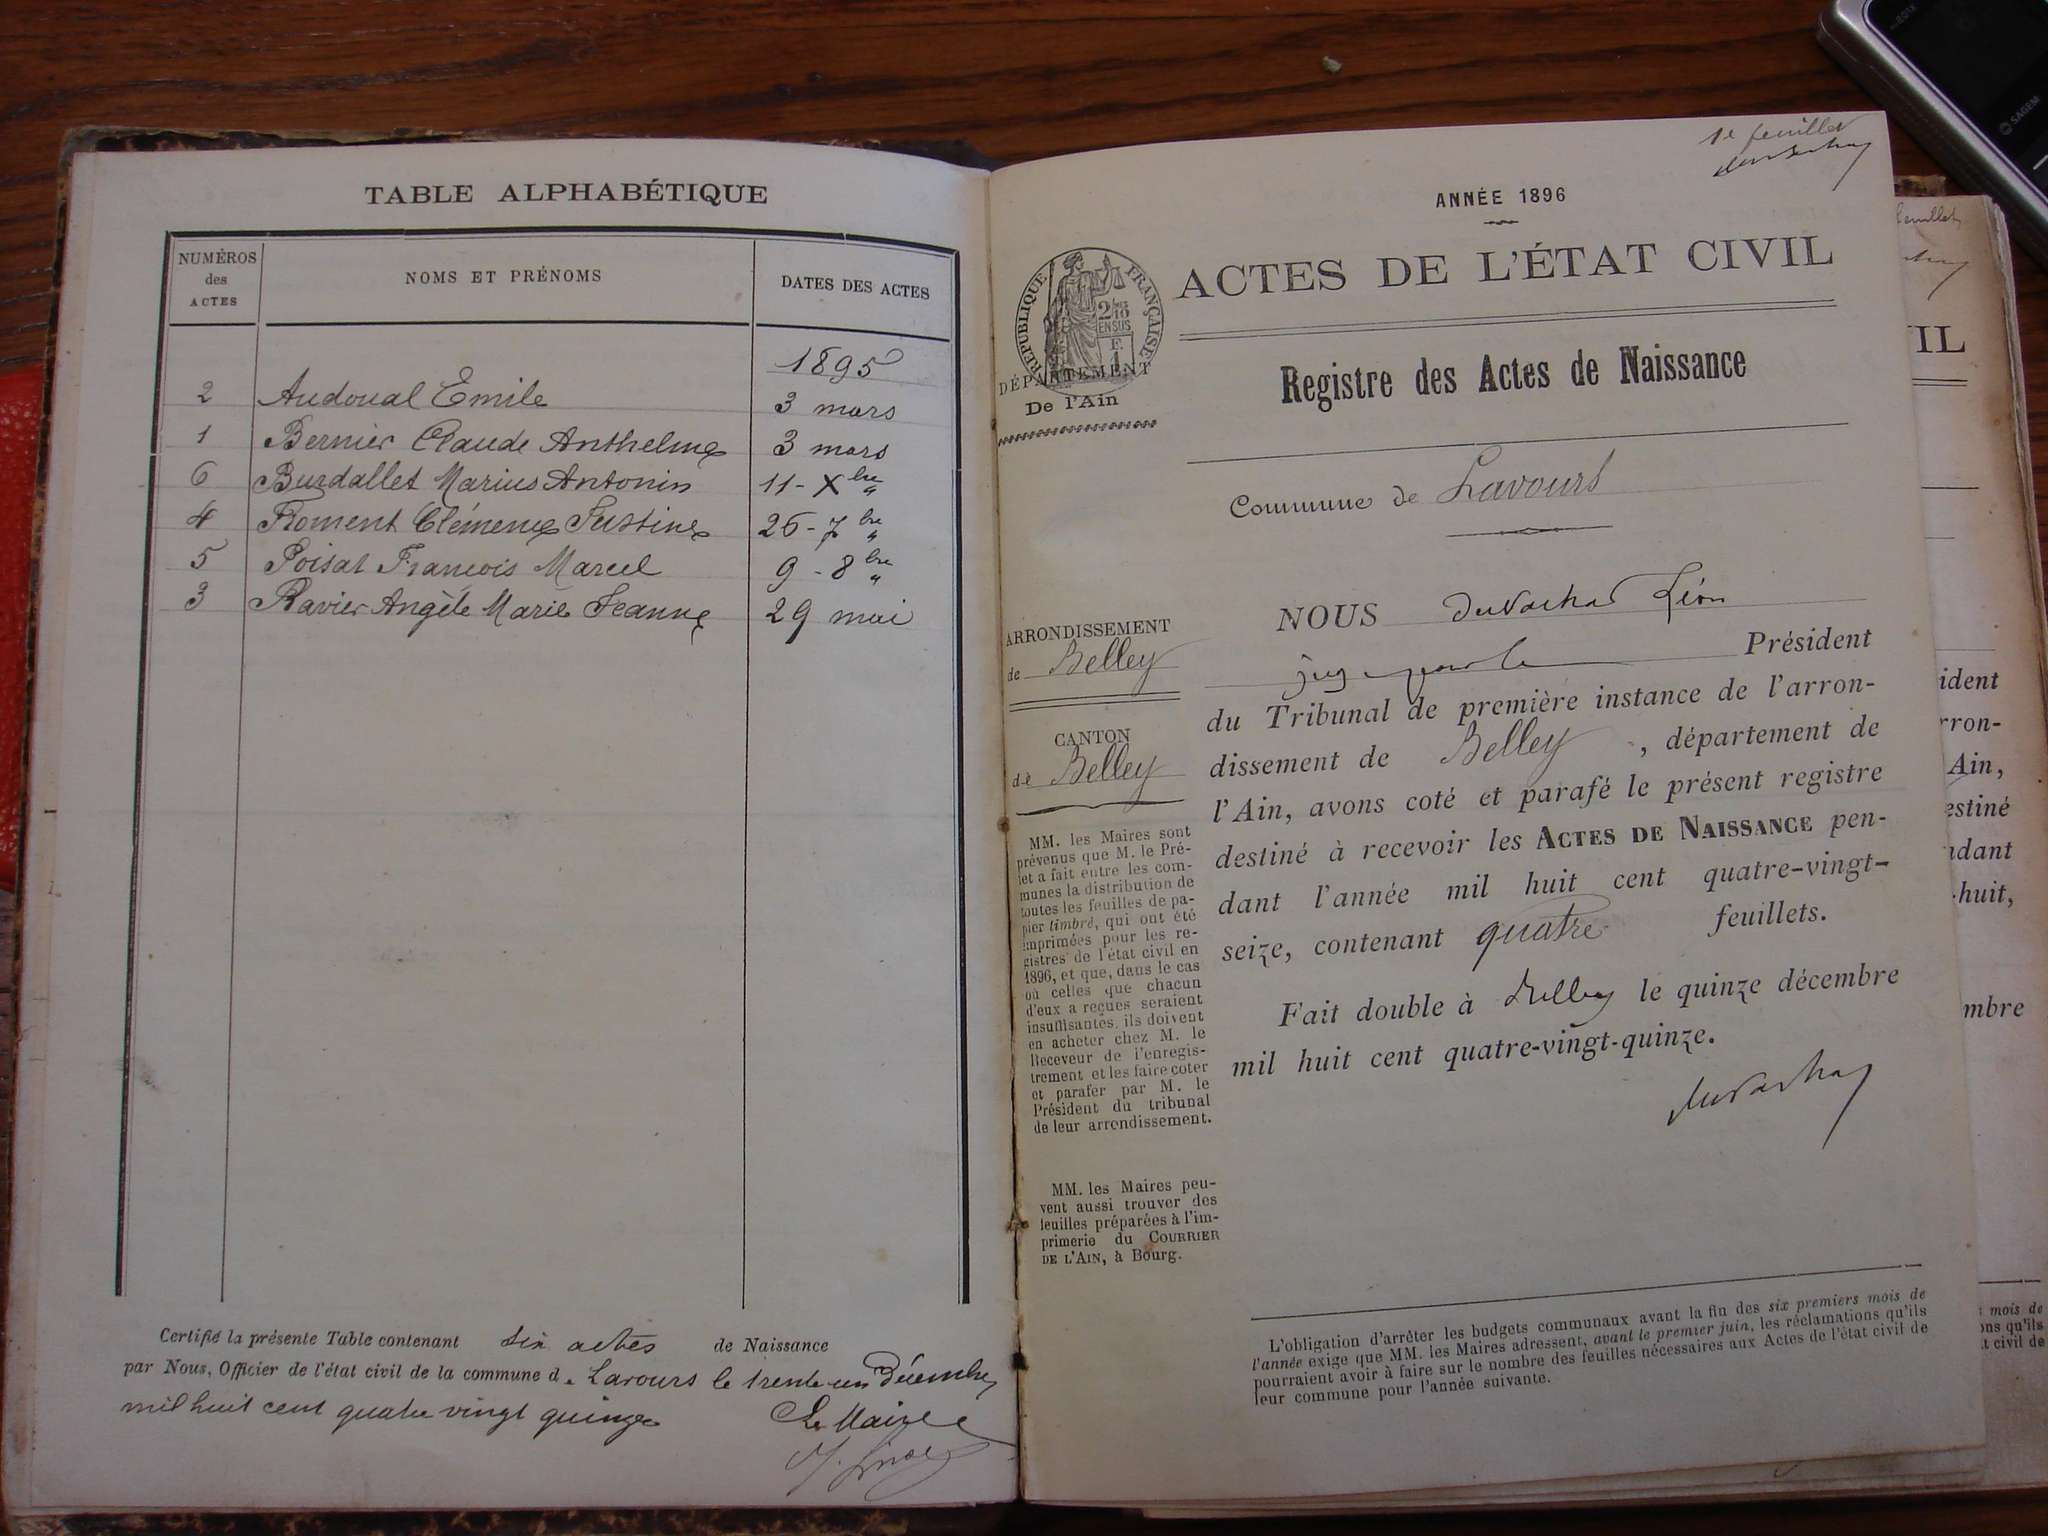 TABLE ALPHABÉTIQUE
NUMÉROS
des
ACTES
NOMS ET PRÉNOMS
DATES DES ACTES
1895
2 Audoual Emile 3 mars
1 Bernier Claude Anthelme 3 mars
6 Burdallet Marius Antonin 11 - Xbre "
4 Froment Clémence Justine 26 - 7bre "
5 Poisat Francois Marcel 9 - 8bre "
3 Ravier Angèle Marie Jeanne 29 mai
Certifié la présente Table contenant six actes de Naissance
par Nous, Officier de l'état civil de la commune d. Lavours le trente un Décembre
mil huit cent quatre vingt quinze Le Maire
1e feuillet
ANNÉE 1896
ACTES DE L'ÉTAT CIVIL
Registre des Actes de Naissance
Commune de Lavours
RÉPUBLIQUE FRANÇAISE
2/10
EN SUS
F.
1
DÉPARTEMENT
De l'Ain
ARRONDISSEMENT
de Belley
CANTON
de Belley
MM. les Maires sont
prévenus que M. le Pré-
fet a fait entre les com-
munes la distribution de
toutes les feuilles de pa-
pier timbré, qui ont été
imprimées pour les re-
gistres de l'état civil en
1896, et que, dans le cas
où celles que chacun
d'eux a reçues seraient
insuffisantes, ils doivent
en acheter chez M. le
Receveur de l'enregis-
trement et les faire coter
et parafer par M. le
Président du tribunal
de leur arrondissement.
MM. les Maires peu-
vent aussi trouver des
feuilles préparées à l'im-
primerie du COURRIER
DE L'AIN, à Bourg.
NOUS Léon
Président
du Tribunal de première instance de l'arron-
dissement de Belley, département de
l'Ain, avons coté et parafé le présent registre
destiné à recevoir les ACTES DE NAISSANCE pen-
dant l'année mil huit cent quatre-vingt-
seize, contenant quatre feuillets.
Fait double à Belley le quinze décembre
mil huit cent quatre-vingt-quinze.
L'obligation d'arrêter les budgets communaux avant la fin des six premiers mois de
l'année exige que MM. les Maires adressent, avant le premier juin, les réclamations qu'ils
pourraient avoir à faire sur le nombre des feuilles nécessaires aux Actes de l'état civil de
leur commune pour l'année suivante.
feuillet
IL
ident
rron-
Ain,
estiné
ndant
-huit,
mbre
mois de
ons qu'ils
t civil de
SAGEM